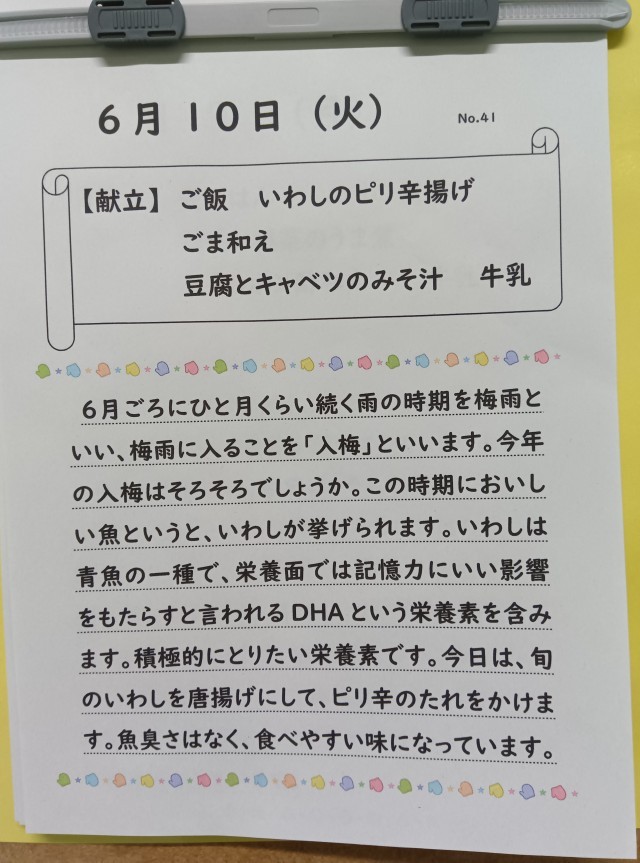 6月10日（火）
No.41
【献立】 ご飯 いわしのピリ辛揚げ
ごま和え
豆腐とキャベツのみそ汁 牛乳
6月ごろにひと月くらい続く雨の時期を梅雨と
いい、梅雨に入ることを「入梅」といいます。今年
の入梅はそろそろでしょうか。この時期においし
い魚というと、いわしが挙げられます。いわしは
青魚の一種で、栄養面では記憶力にいい影響
をもたらすと言われるDHAという栄養素を含み
ます。積極的にとりたい栄養素です。今日は、旬
のいわしを唐揚げにして、ピリ辛のたれをかけま
す。魚臭さはなく、食べやすい味になっています。